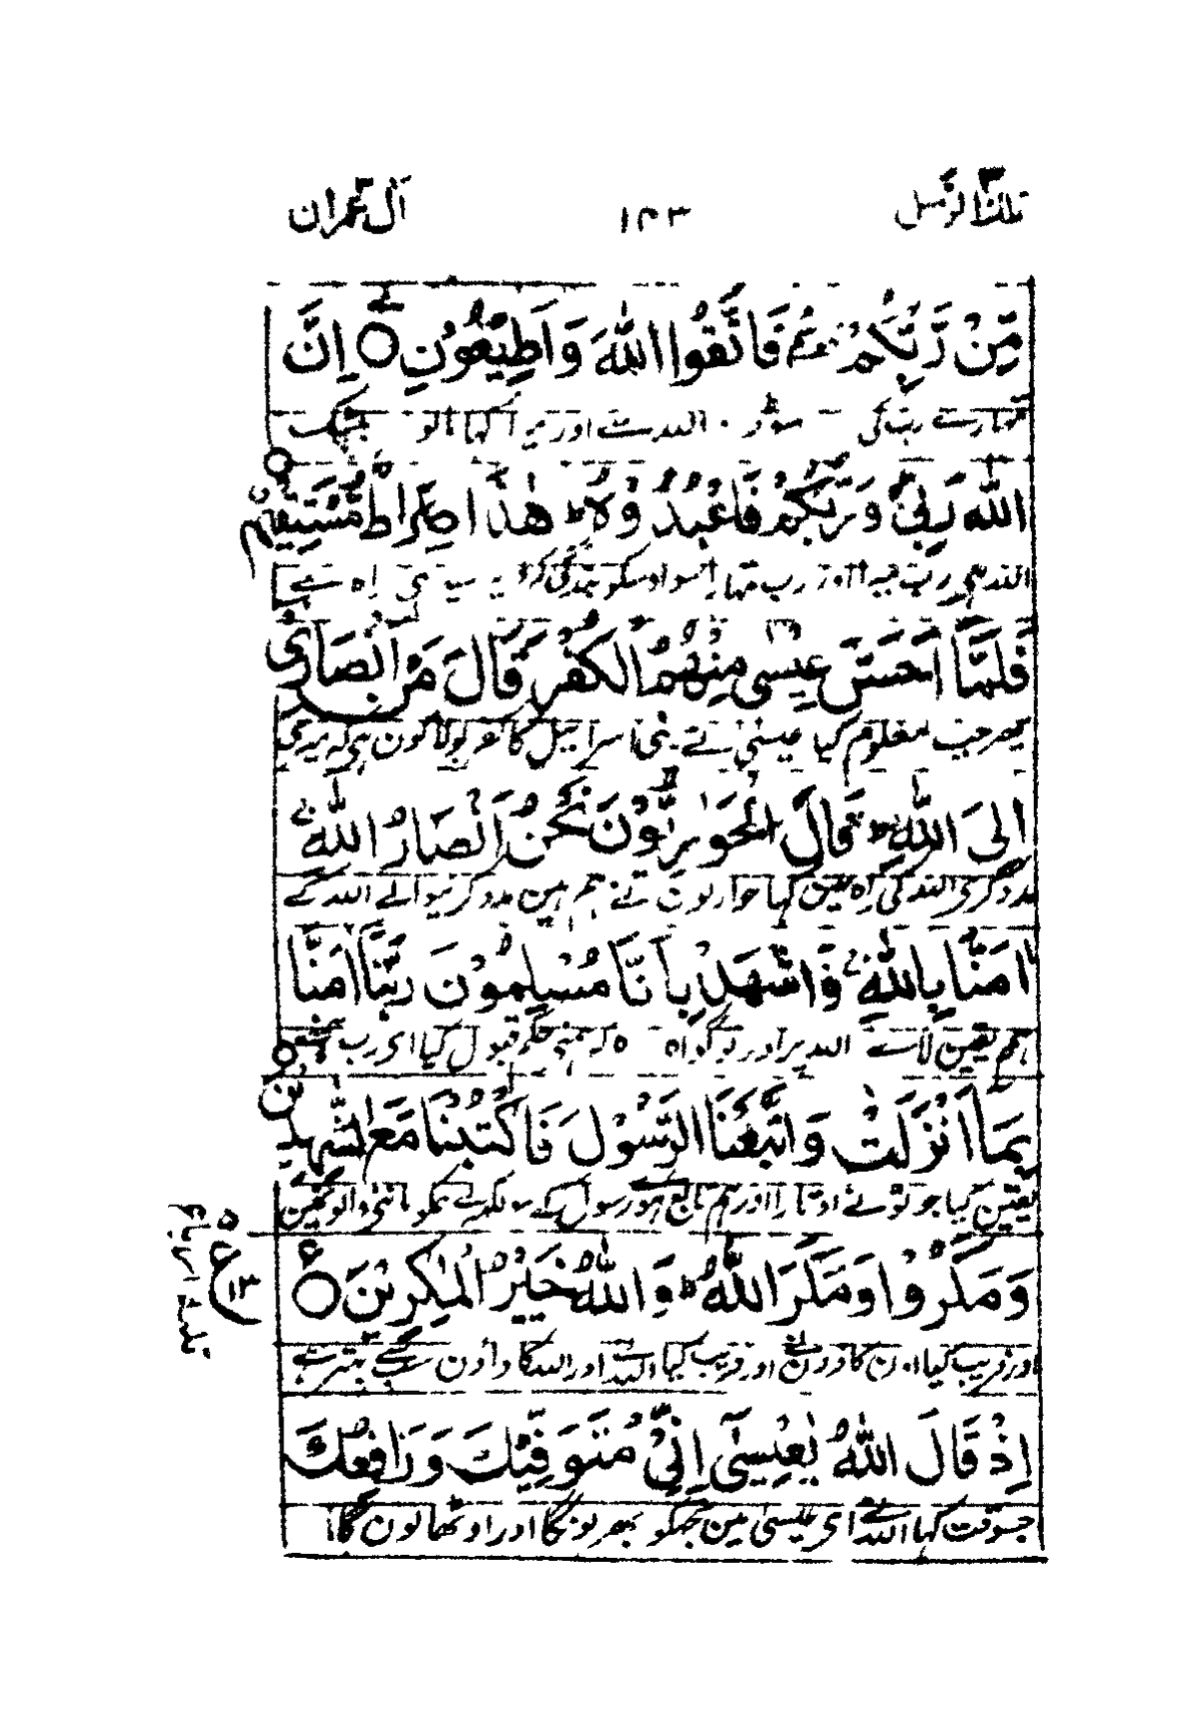 تلك الرسل ٣ ١٤٣ آل عمران ٣
مِّنْ رَّبِّكُمْ فَاتَّقُوا اللّٰهَ وَاَطِيْعُوْنِ ○ اِنَّ
تمہارے رب کی سو ڈر اللہ سے اور میرا کہا مانو بیشک
اللّٰهَ رَبِّيْ وَرَبُّكُمْ فَاعْبُدُوْهُ ؕ هٰذَا صِرَاطٌ مُّسْتَقِيْمٌ ○
اللہ ہی رب میرا اور رب تمہارا سو اوسکو بندگی کرو یہ سیدھی راہ ہے
فَلَمَّا اَحَسَّ عِيْسٰى مِنْهُمُ الْكُفْرَ قَالَ مَنْ اَنْصَارِيْ
پھر جب معلوم کیا عیسیٰ نے بنی اسرائیل کا کفر بولا کون ہی کہ میری
اِلَى اللّٰهِ ؕ قَالَ الْحَوَارِيُّوْنَ نَحْنُ اَنْصَارُ اللّٰهِ ۚ
مدد کری اللہ کی راہ مین کہا حواریون نے ہم ہین مدد کرنیوالے اللہ کے
اٰمَنَّا بِاللّٰهِ ۚ وَاشْهَدْ بِاَنَّا مُسْلِمُوْنَ رَبَّنَا اٰمَنَّا
ہم یقین لائے اللہ پر اور تو گواہ رہ کہ ہمنی حکم قبول کیا ای رب ہمنے
بِمَا اَنْزَلْتَ وَاتَّبَعْنَا الرَّسُوْلَ فَاكْتُبْنَا مَعَ الشّٰهِدِيْنَ ○
یقین کیا جو تو نے اوتارا اور ہم تابع ہوۓ رسول کے سو لکھ لے ہمکو ماننی والونمین
وَمَكَرُوْا وَمَكَرَ اللّٰهُ ؕ وَاللّٰهُ خَيْرُ الْمٰكِرِيْنَ ○ ع
ع ٥ ١٣
اور فریب کیا اون کافرون نے اور فریب کیا اللہ نے اور اللہ کا داؤن سب سے بہتر ہے
اِذْ قَالَ اللّٰهُ يٰعِيْسٰى اِنِّيْ مُتَوَفِّيْكَ وَرَافِعُكَ
جسوقت کہا اللہ نے ای عیسیٰ مین تجھکو بھر لونگا اور اوٹھا لون گا